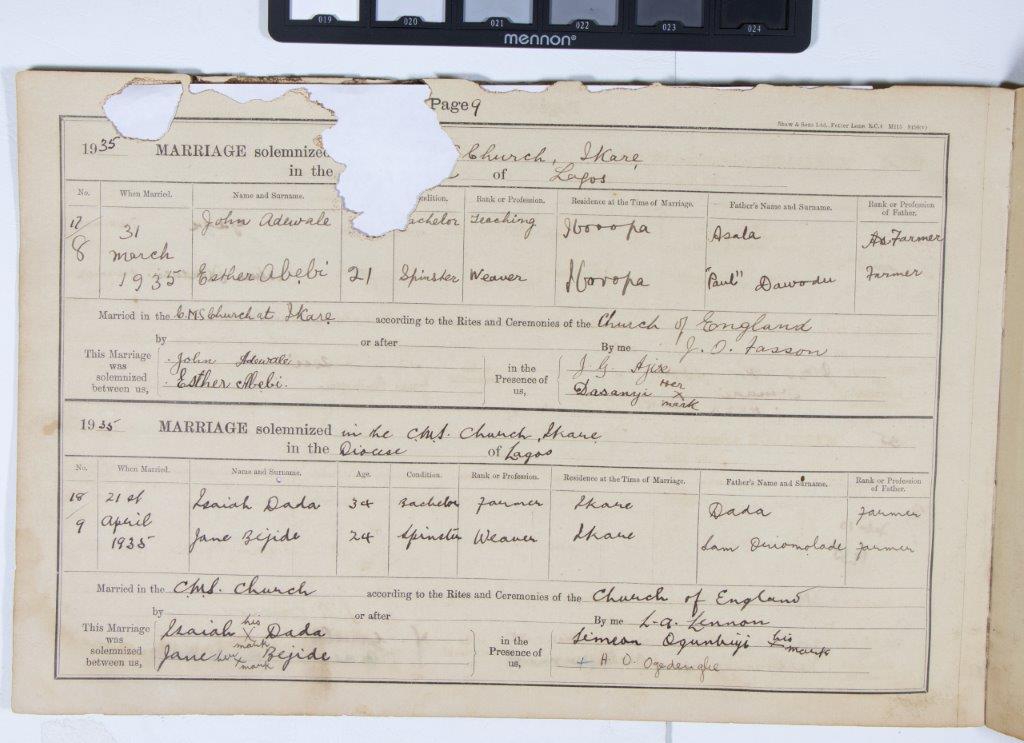 019 020 021 022 023 024
mennon®
Page 9
Shaw & Sons Ltd., Fetter Lane, E.C.4
1935 MARRIAGE solemnized Church, Ikare
in the of Lagos
No. When Married. Name and Surname. ndition. Rank or Profession. Residence at the Time of Marriage. Father's Name and Surname. Rank or Profession of Father.
17/8 31 March 1935 John Adewale achelor Teaching Iboropa Asala Farmer
Esther Abebi 21 Spinster Weaver Iboropa "Paul" Dawodu Farmer
Married in the C.M.S Church at Ikare according to the Rites and Ceremonies of the Church of England
by or after By me J. O.
This Marriage was solemnized between us, John Adewale in the Presence of us, J. G. Ajixe
Esther Abebi. Dasanyi her x mark
1935 MARRIAGE solemnized in the C.M.S. Church, Ikare
in the Diocese of Lagos
No. When Married. Name and Surname. Age. Condition. Rank or Profession. Residence at the Time of Marriage. Father's Name and Surname. Rank or Profession of Father.
18/9 21st April 1935 Isaiah Dada 34 Bachelor Farmer Ikare Dada Farmer
Jane Bejide 24 Spinster Weaver Ikare Sam Farmer
Married in the C.M.S. Church according to the Rites and Ceremonies of the Church of England
by or after By me L. A. Lennon
This Marriage was solemnized between us, Isaiah his x mark Dada in the Presence of us, Simeon Ogunbiyi his x mark
Jane her x mark Bejide + A. O. Ogedengbe